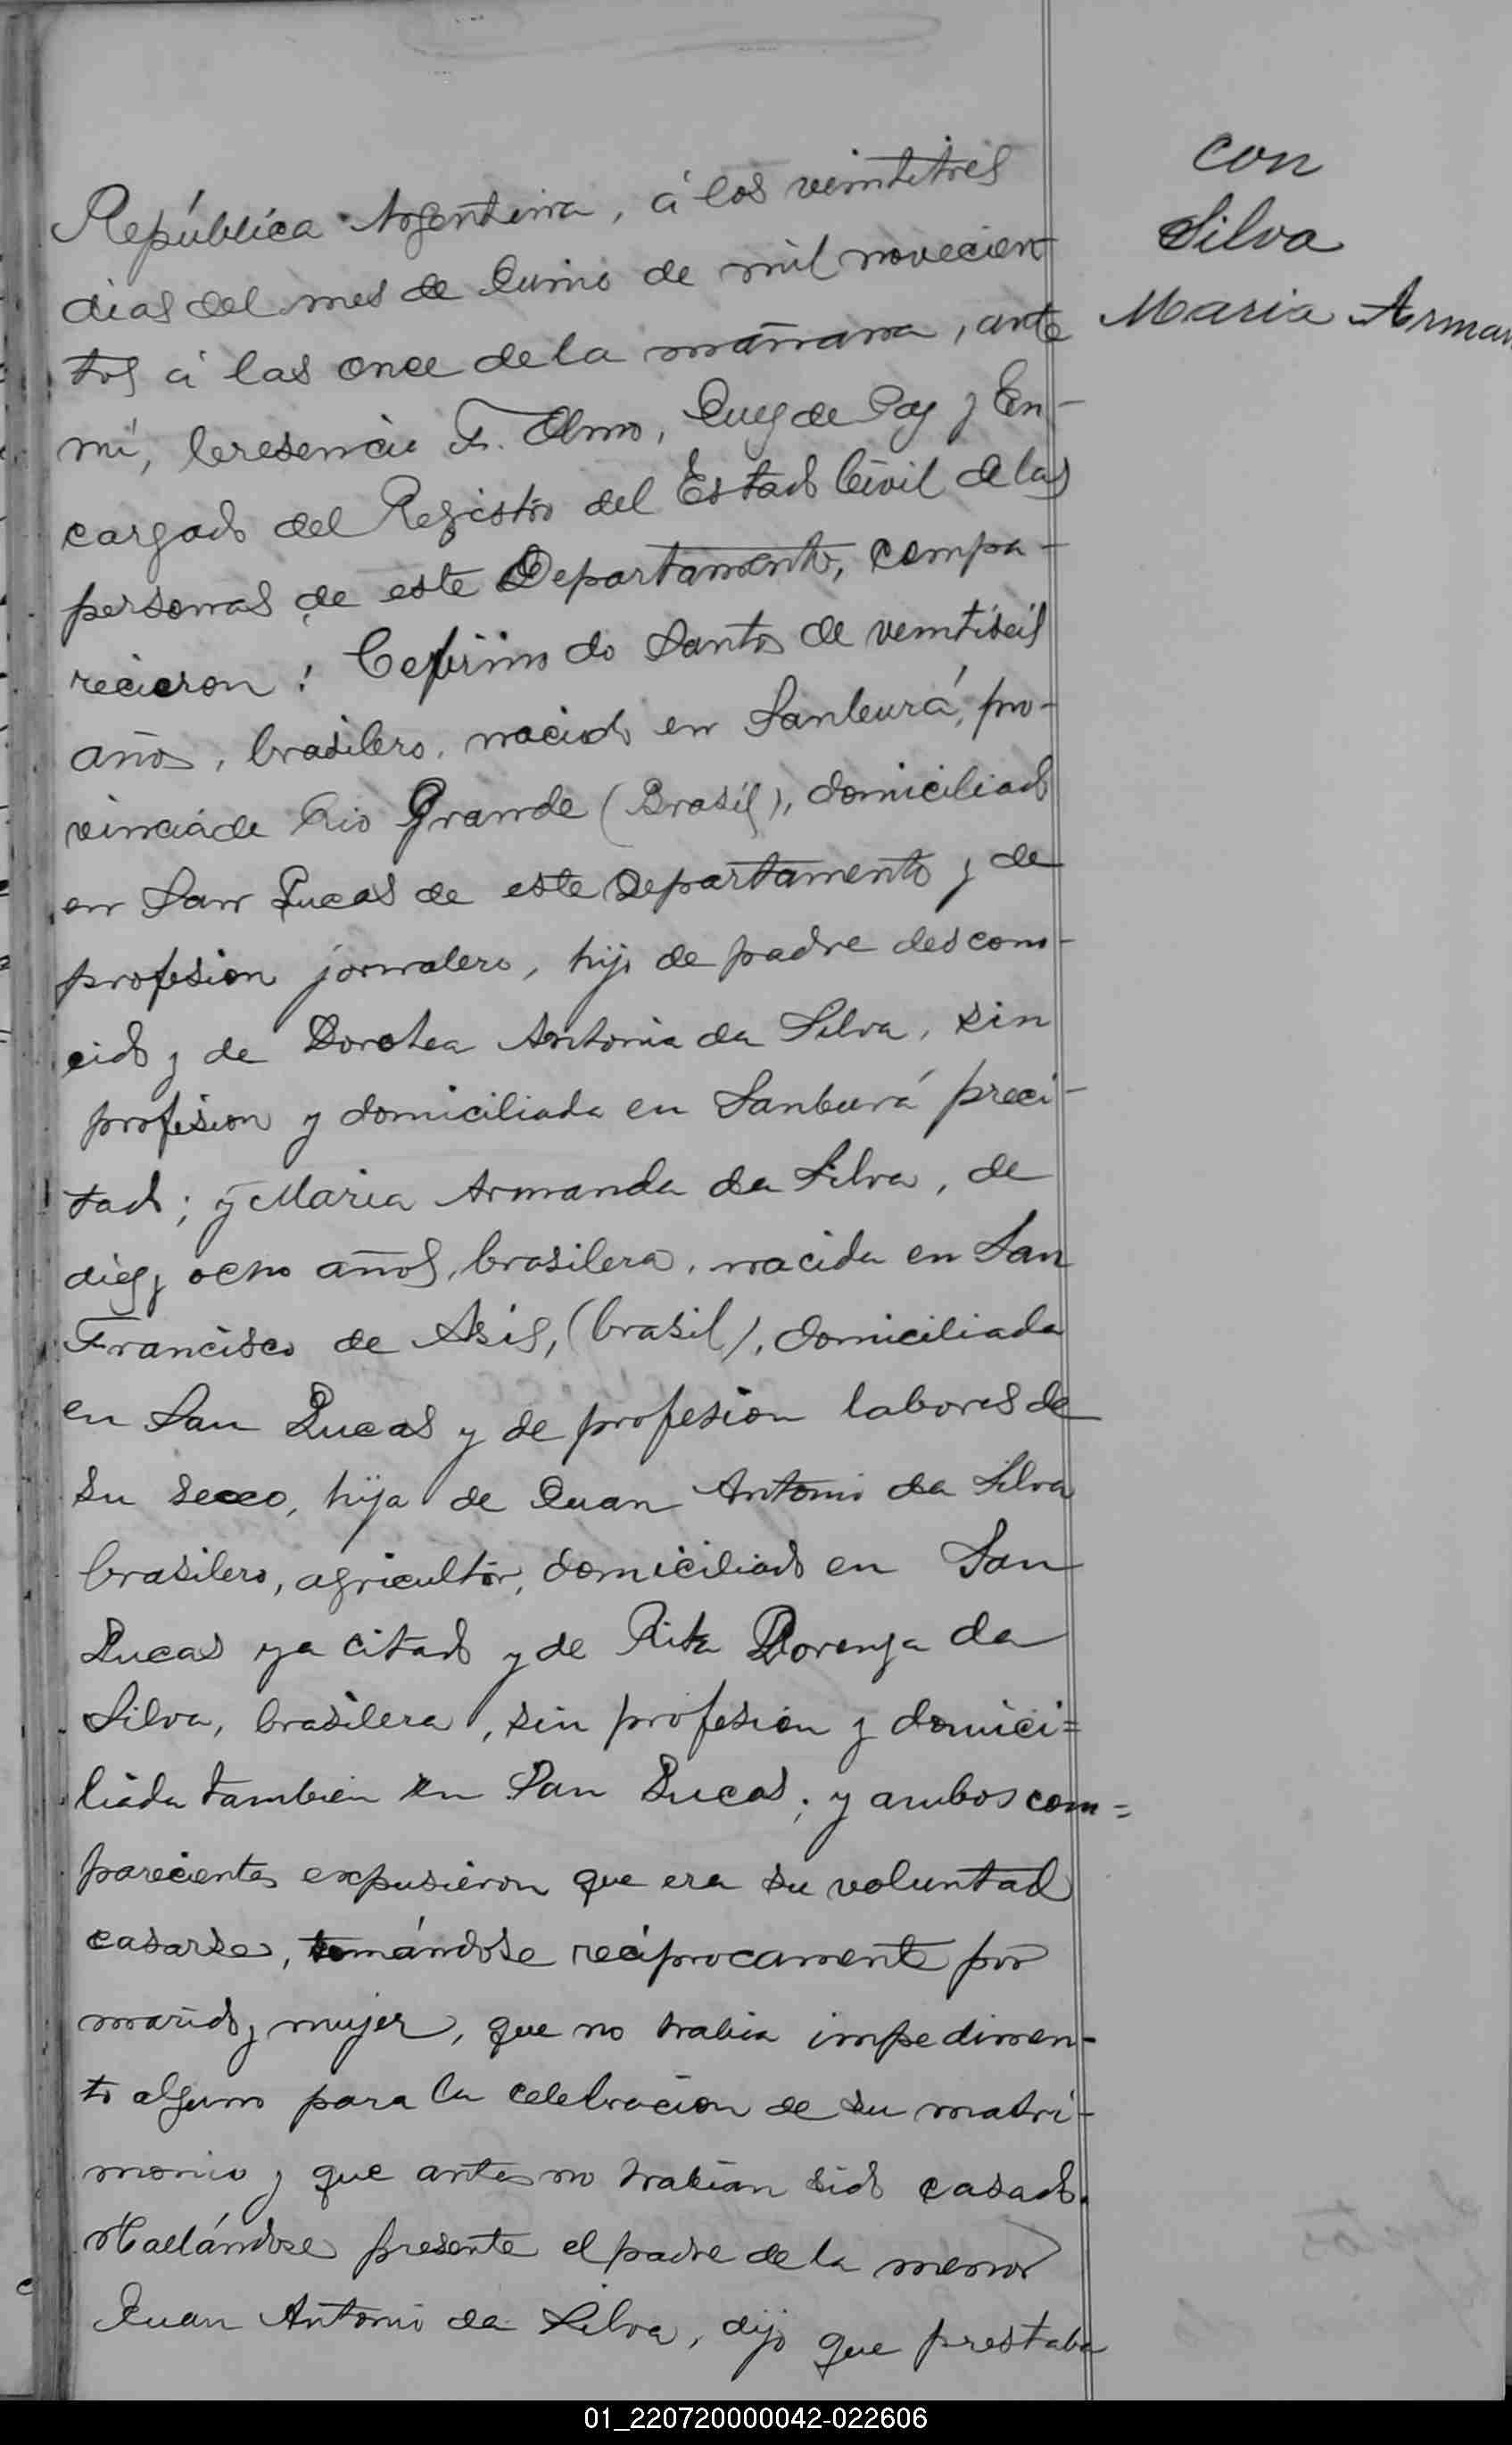 República Argentina, á los veintitres
dias del mes de Junio de mil novecien
tos á las once de la mañana, ante
mí, Cresencio F. Olmo, Juez de Paz y En-
cargado del Registro del Estado Civil de las
personas de este Departamento, compa-
recieron: Ceferino do Santos de veintiseis
años, brasilero, nacido en Sanburá, pro-
vincia de Rio Grande (Brasil), domiciliado
en San Lucas de este Departamento y de
profesion jornalero, hijo de padre descono-
cido y de Dorotea Antonia da Silva, sin
profesion y domiciliada en Sanburá preci-
tado; y Maria Armanda da Silva, de
diez y ocho años, brasilera, nacida en San
Francisco de Asis, (brasil), domiciliada
en San Lucas y de profesion labores de
su sexo, hija de Juan Antonio da Silva
brasilero, agricultor, domiciliado en San
Lucas ya citado y de Rita Lorenza da
Silva, brasilera, sin profesion y domici=
liada tambien en San Lucas; y ambos com=
parecientes expusieron que era su voluntad
casarse, tomándose reciprocamente por
marido y mujer, que no habia impedimen-
to alguno para la celebracion de su matri-
monio y que antes no habian sido casados.
Hallándose presente el padre de la menor
Juan Antonio da Silva, dijo que prestaba
con
Silva
Maria Arman
01_220720000042-022606